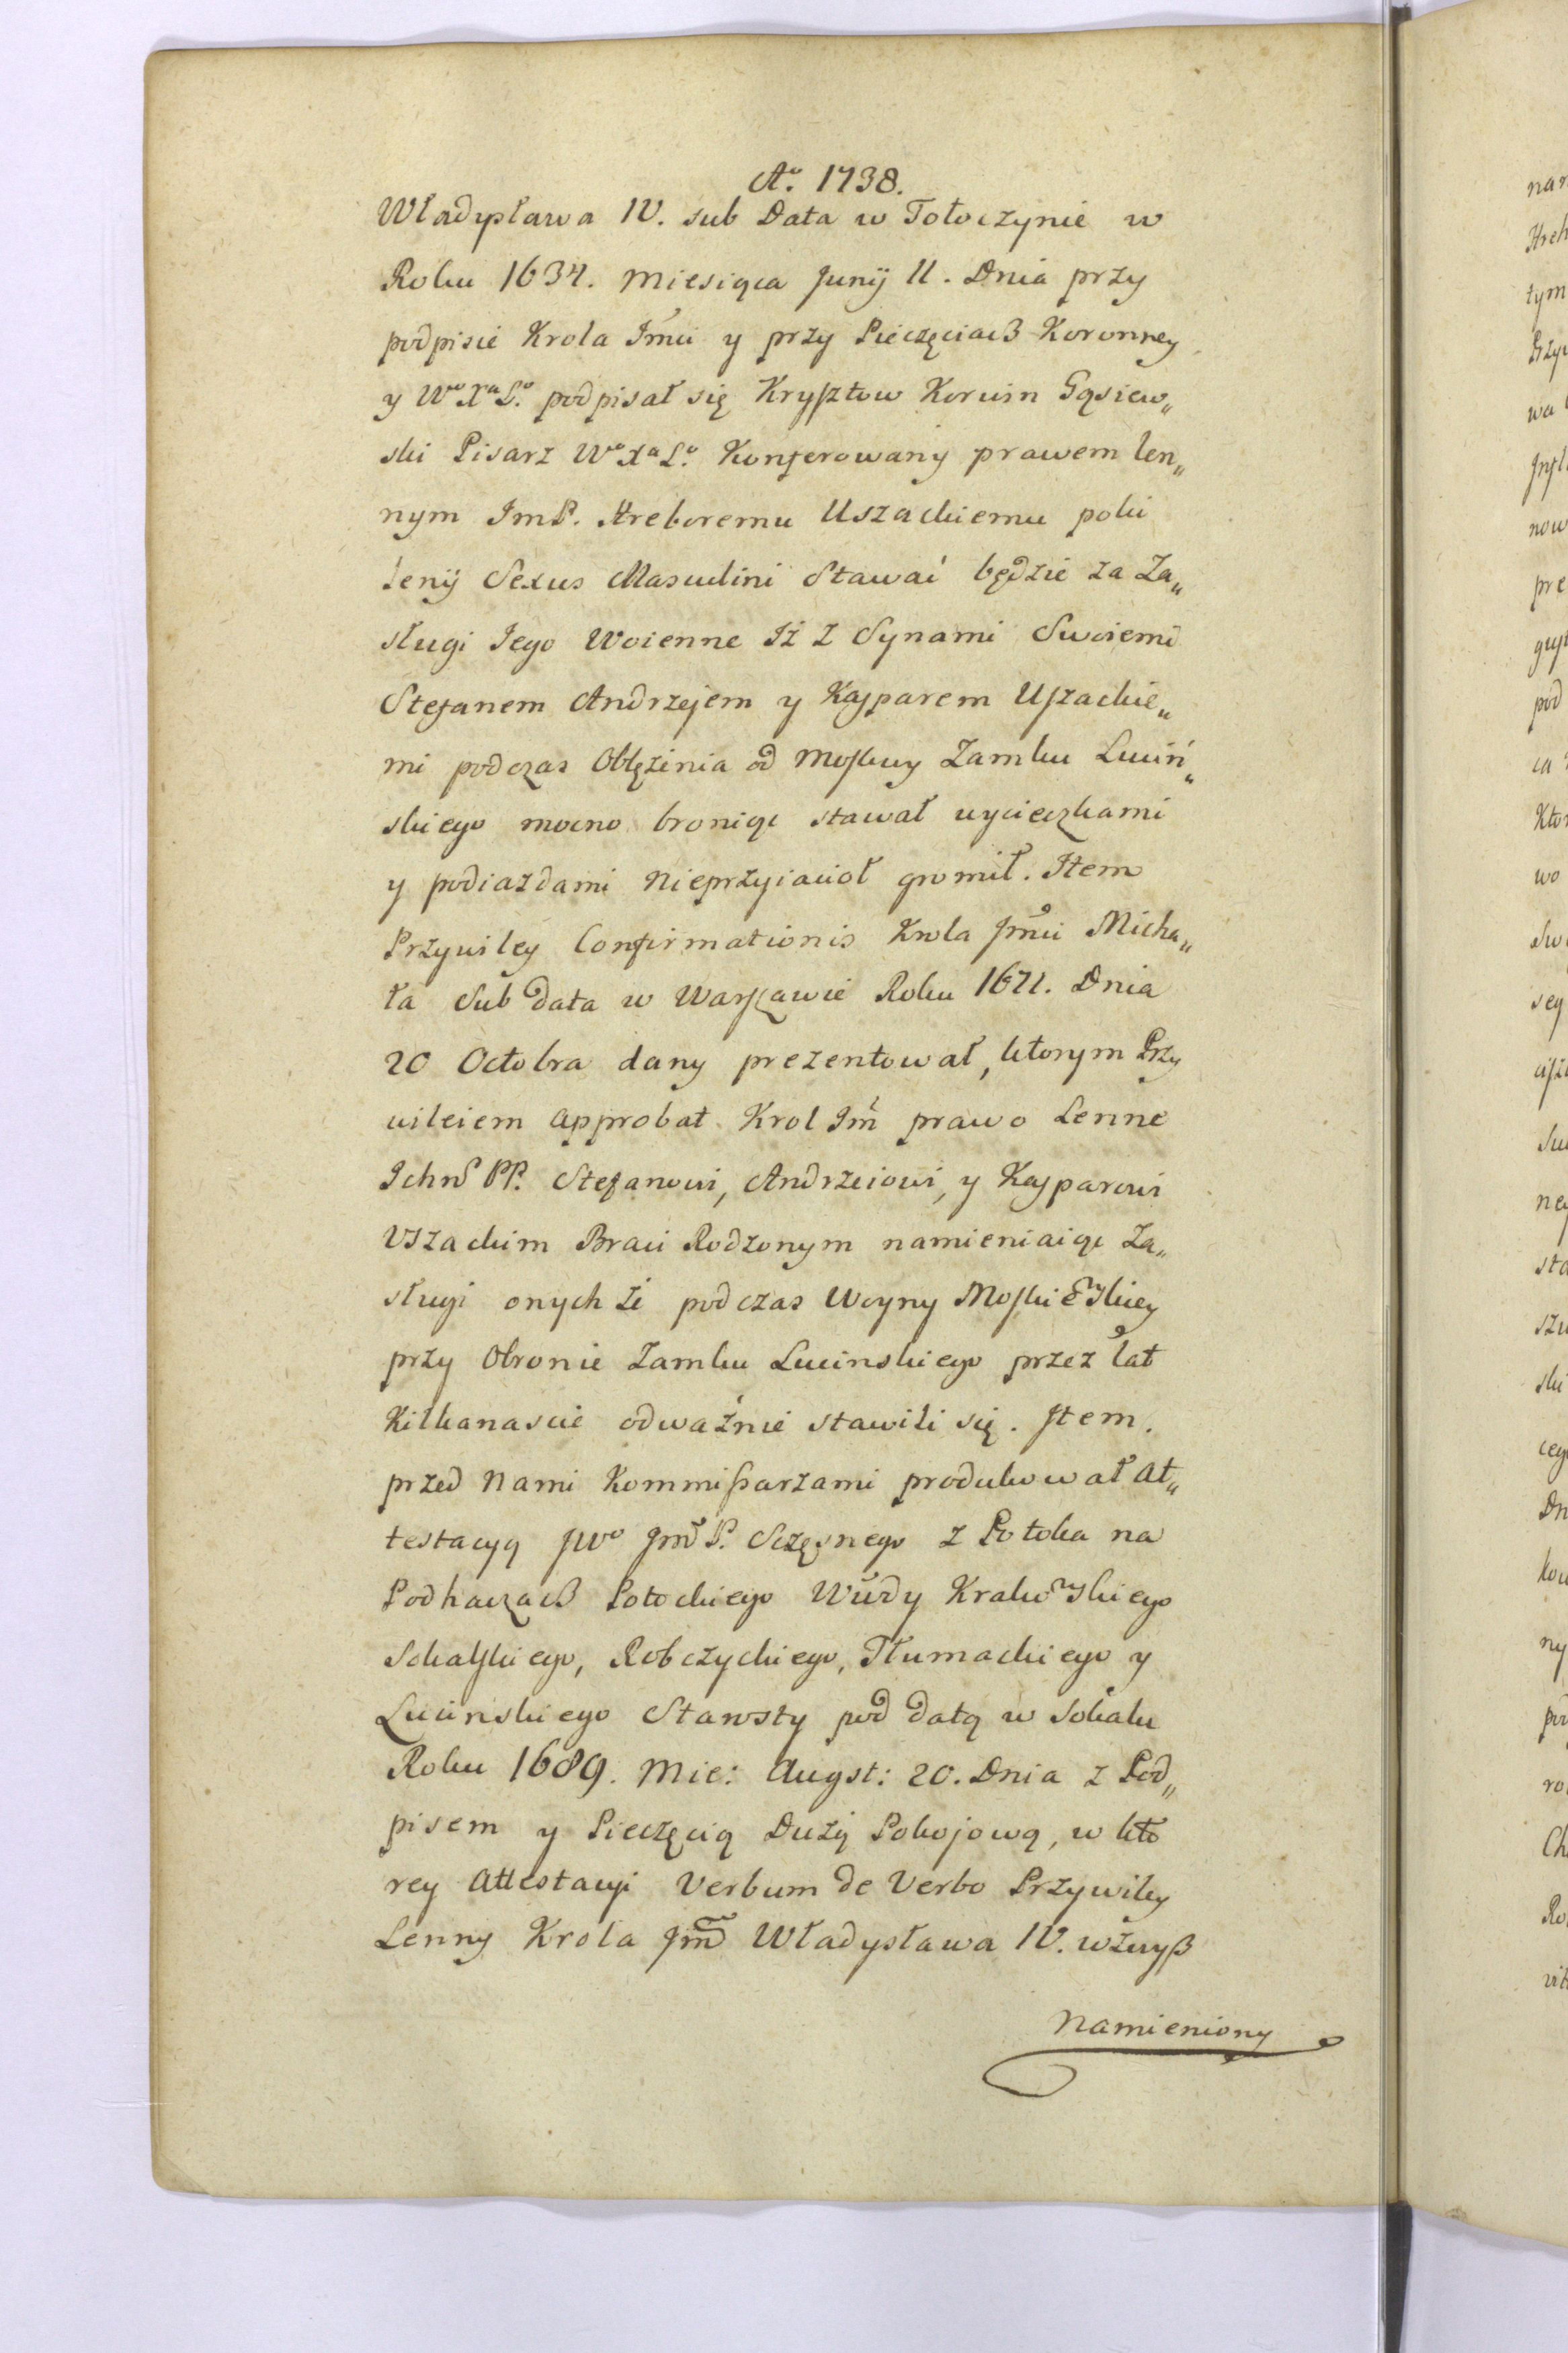 Aº. 1738.
Władysława IV. sub Data w Tołoczynie w
Roku 1634. Miesiąca Junÿ 11. Dnia przy
podpisie Krola Jmci y przy Pieczęciach Koronney
y Wº Xª Lº. podpisał się Krysztow Korwin Gąsiew„
ski Pisarz Wº Xª Lº. Konferowany prawem len„
nym JmP. Hrehoremu Uszackiemu poki
lenÿ Sexus Masculini Stawać będzie za Za„
sługi Jego Woienne Iż z Synami Swoiemi
Stefanem Andrzejem y Kasparem Uszackie„
mi podczas Oblężenia od Moskwy Zamku Luciń„
skiego mocno broniąc stawał wycieczkami
y podiazdami Nieprzyiacioł gromił. Item
Przywiley Confirmationis Krola Jmci Micha„
ła Sub data w Warszawie Roku 1671. Dnia
20 Octobra dany prezentował, ktorym Przy
wileiem approbat Krol Jm prawo Lenne
Ichm PP. Stefanowi, Andrzeiowi, y Kasparowi
Uszackim Braci Rodzonym namieniaiąc Za„
sługi onych że podczas Woyny Moskiewskiey
przy Obronie Zamku Lucinskiego przez lat
Kilkanascie odważnie stawili się. Item.
przed Nami Kommissarzami produkował At„
testacyą JWº JmP. Sczęsnego z Potoka na
Podhaczach Potockiego Wdy Krakowskiego
Sokalskiego, Robczyckiego, Tłumackiego y
Lucinskiego Starosty pod datą w Sokalu
Roku 1689. Mie: Augst: 20. Dnia z Pod„
pisem y Pieczęcią Dużą Pokojową, w kto
rey Attestacyi Verbum de Verbo Przywiley
Lenny Krola Jm Władysława IV. wzwyß
Namieniony